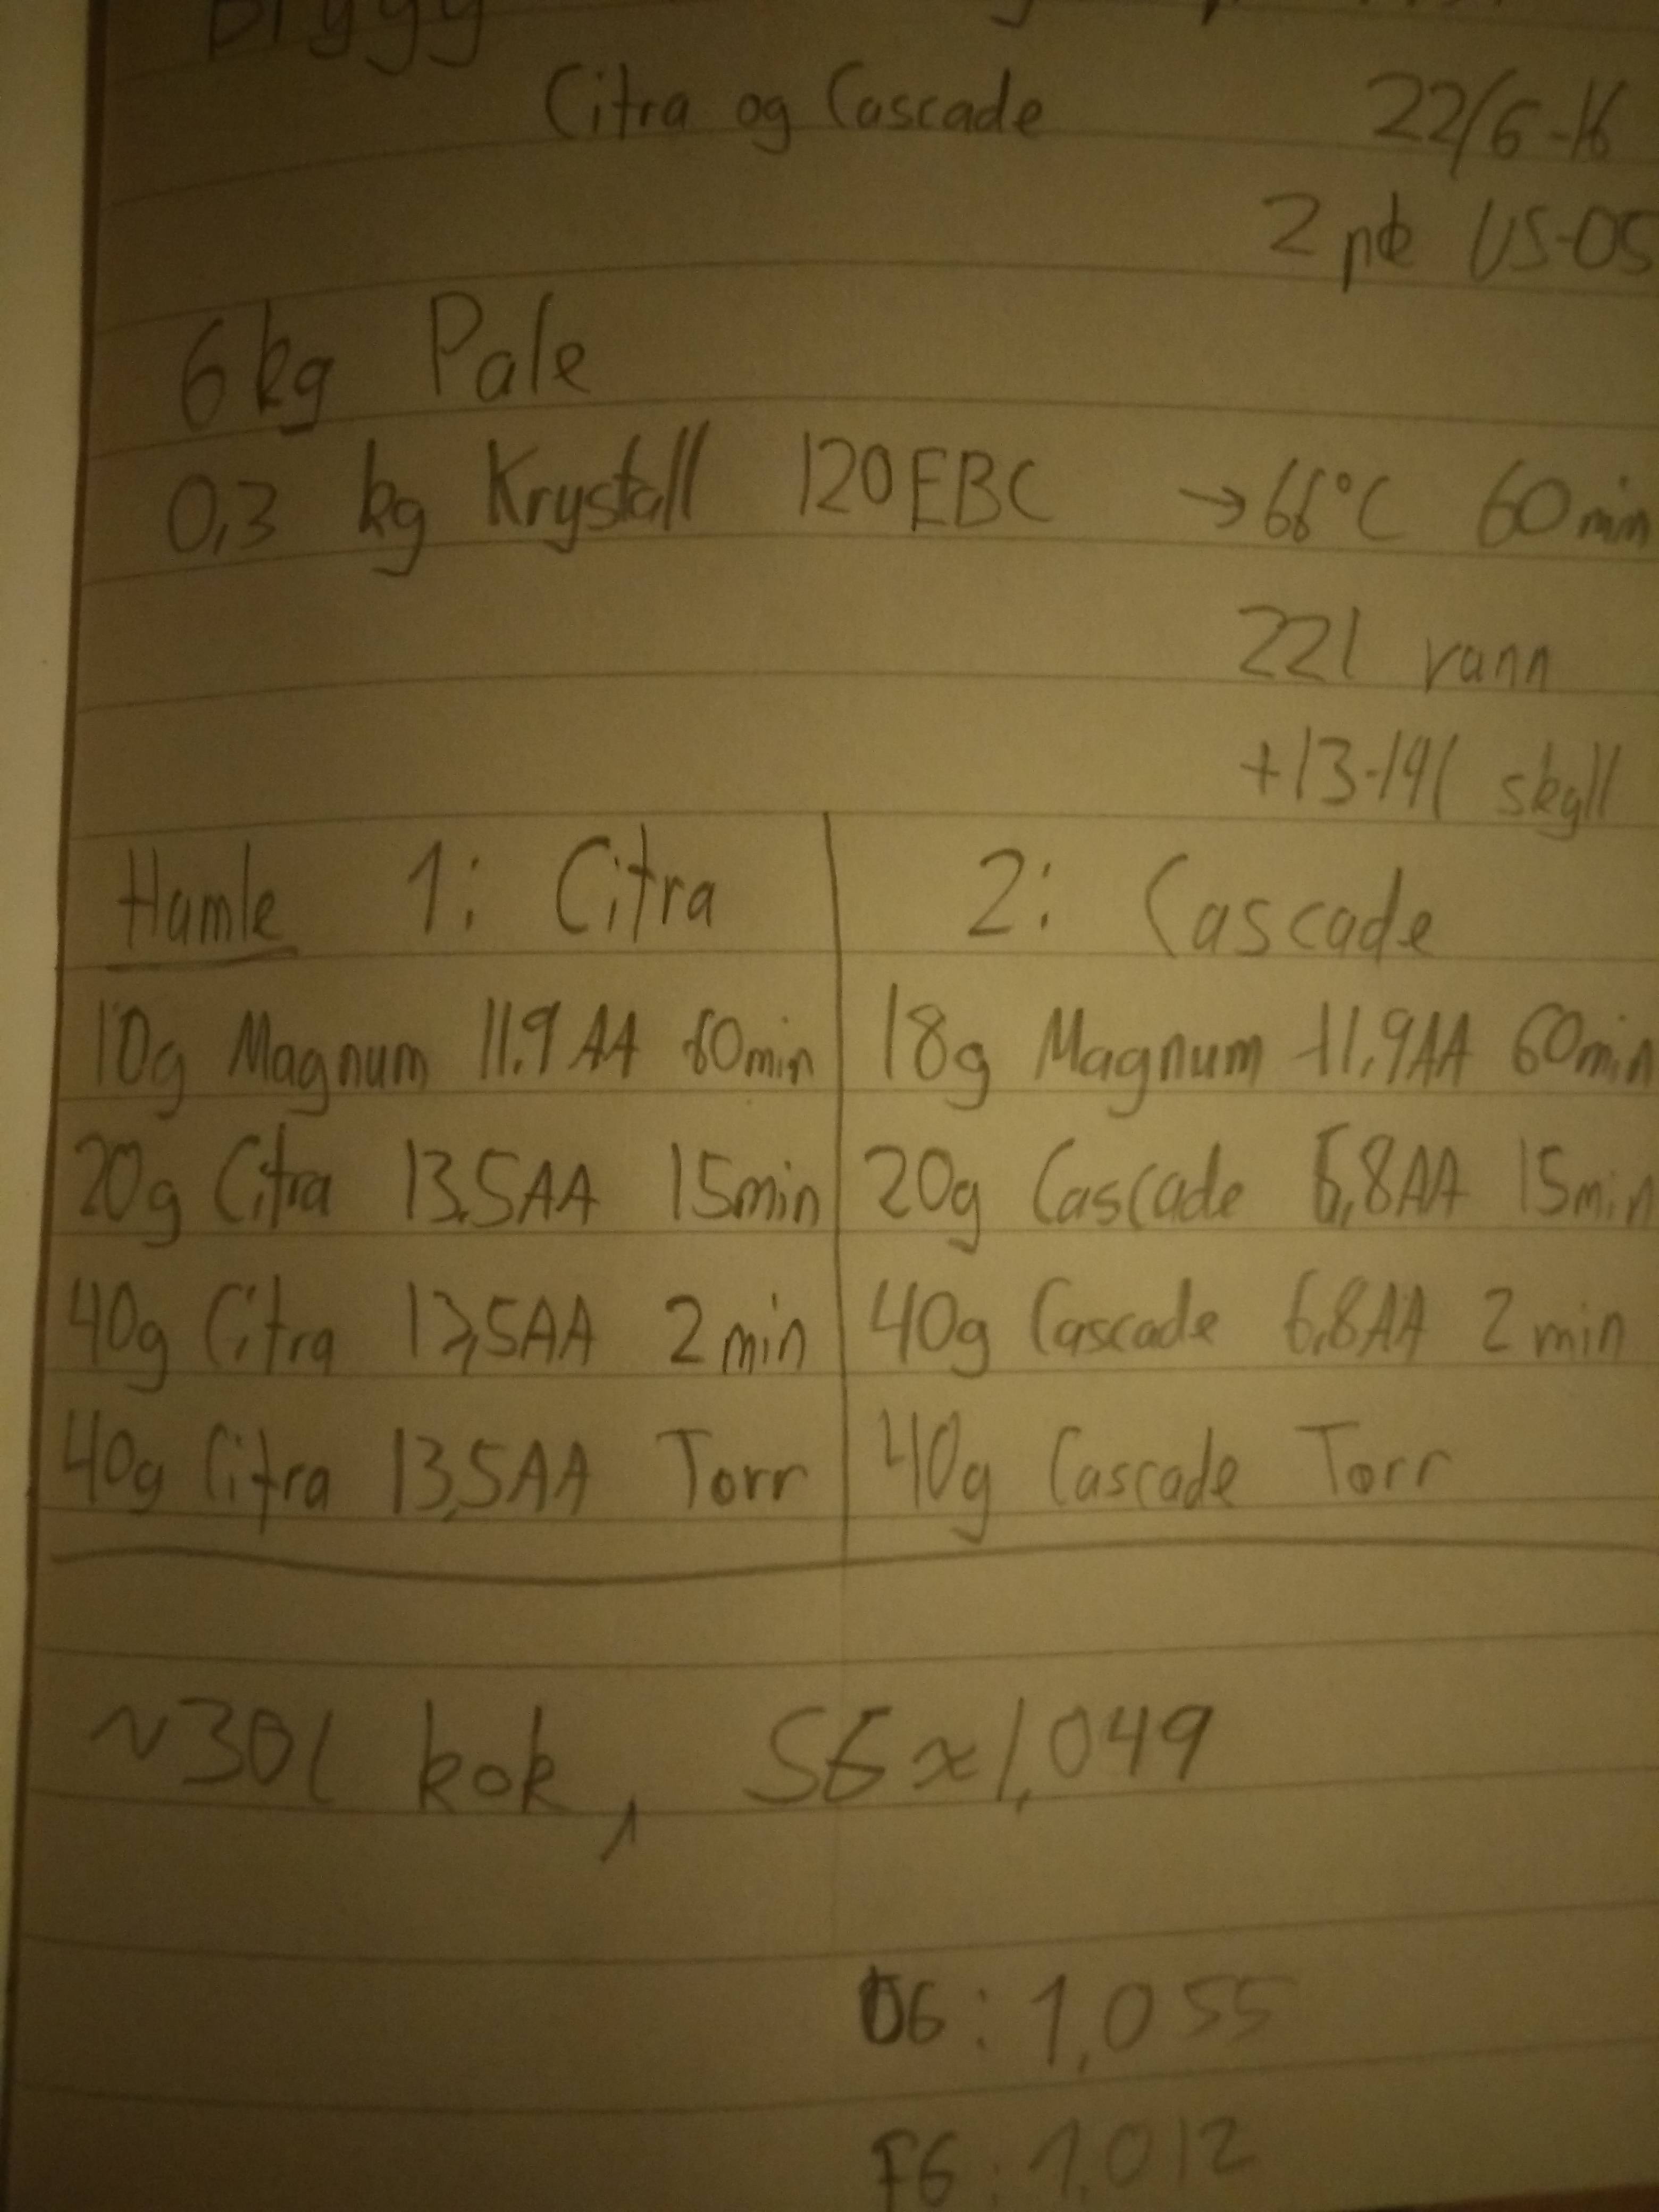 Citra og Cascade 22/6-16
2 pk US-05
6 kg Pale
0,3 kg Krystall 120 EBC → 66°C 60 min
22 l vann
+13-14 l skyll
Hamle 1: Citra 2: Cascade
10g Magnum 11,9 AA 60min 18g Magnum 11,9 AA 60min
20g Citra 13,5AA 15min 20g Cascade 6,8AA 15min
40g Citra 13,5AA 2 min 40g Cascade 6,8AA 2 min
40g Citra 13,5AA Torr 40g Cascade Torr
~30l kok, SG≈1,049
OG: 1,055
FG: 1,012